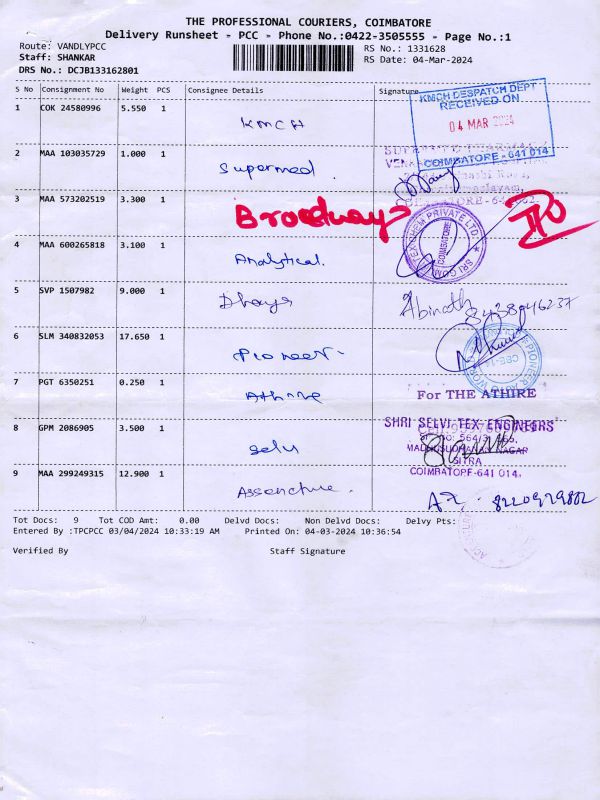 THE PROFESSIONAL COURIERS, COIMBATORE
Delivery Runsheet - PCC - Phone No.:0422-3505555 - Page No.:1
Route: VANDLYPCC
RS No.: 1331628
Staff: SHANKAR
RS Date: 04-Mar-2024
DRS No.: DCJB133162801
S No Consignment No Weight PCS Consignee Details Signature
KMCH DESPATCH DEPT
RECEIVED ON
1 COK 24580996 5.550 1 KMCH
04 MAR 2024
COIMBATORE - 641 014
2 MAA 103035729 1.000 1 Supermed
3 MAA 573202519 3.300 1 Broadways
4 MAA 600265818 3.100 1 Analytical.
5 SVP 1507982 9.000 1 Dhaya Abinath 8438946237
6 SLM 340832053 17.650 1 Pioneer
7 PGT 6350251 0.250 1 Athire For THE ATHIRE
8 GPM 2086905 3.500 1 Selu SHRI SELVI TEX ENGINEERS
SITRA
COIMBATORE-641 014.
9 MAA 299249315 12.900 1
Tot Docs: 9 Tot COD Amt: 0.00 Delvd Docs: Non Delvd Docs: Delvy Pts:
Entered By :TPCPCC 03/04/2024 10:33:19 AM Printed On: 04-03-2024 10:36:54
Verified By Staff Signature